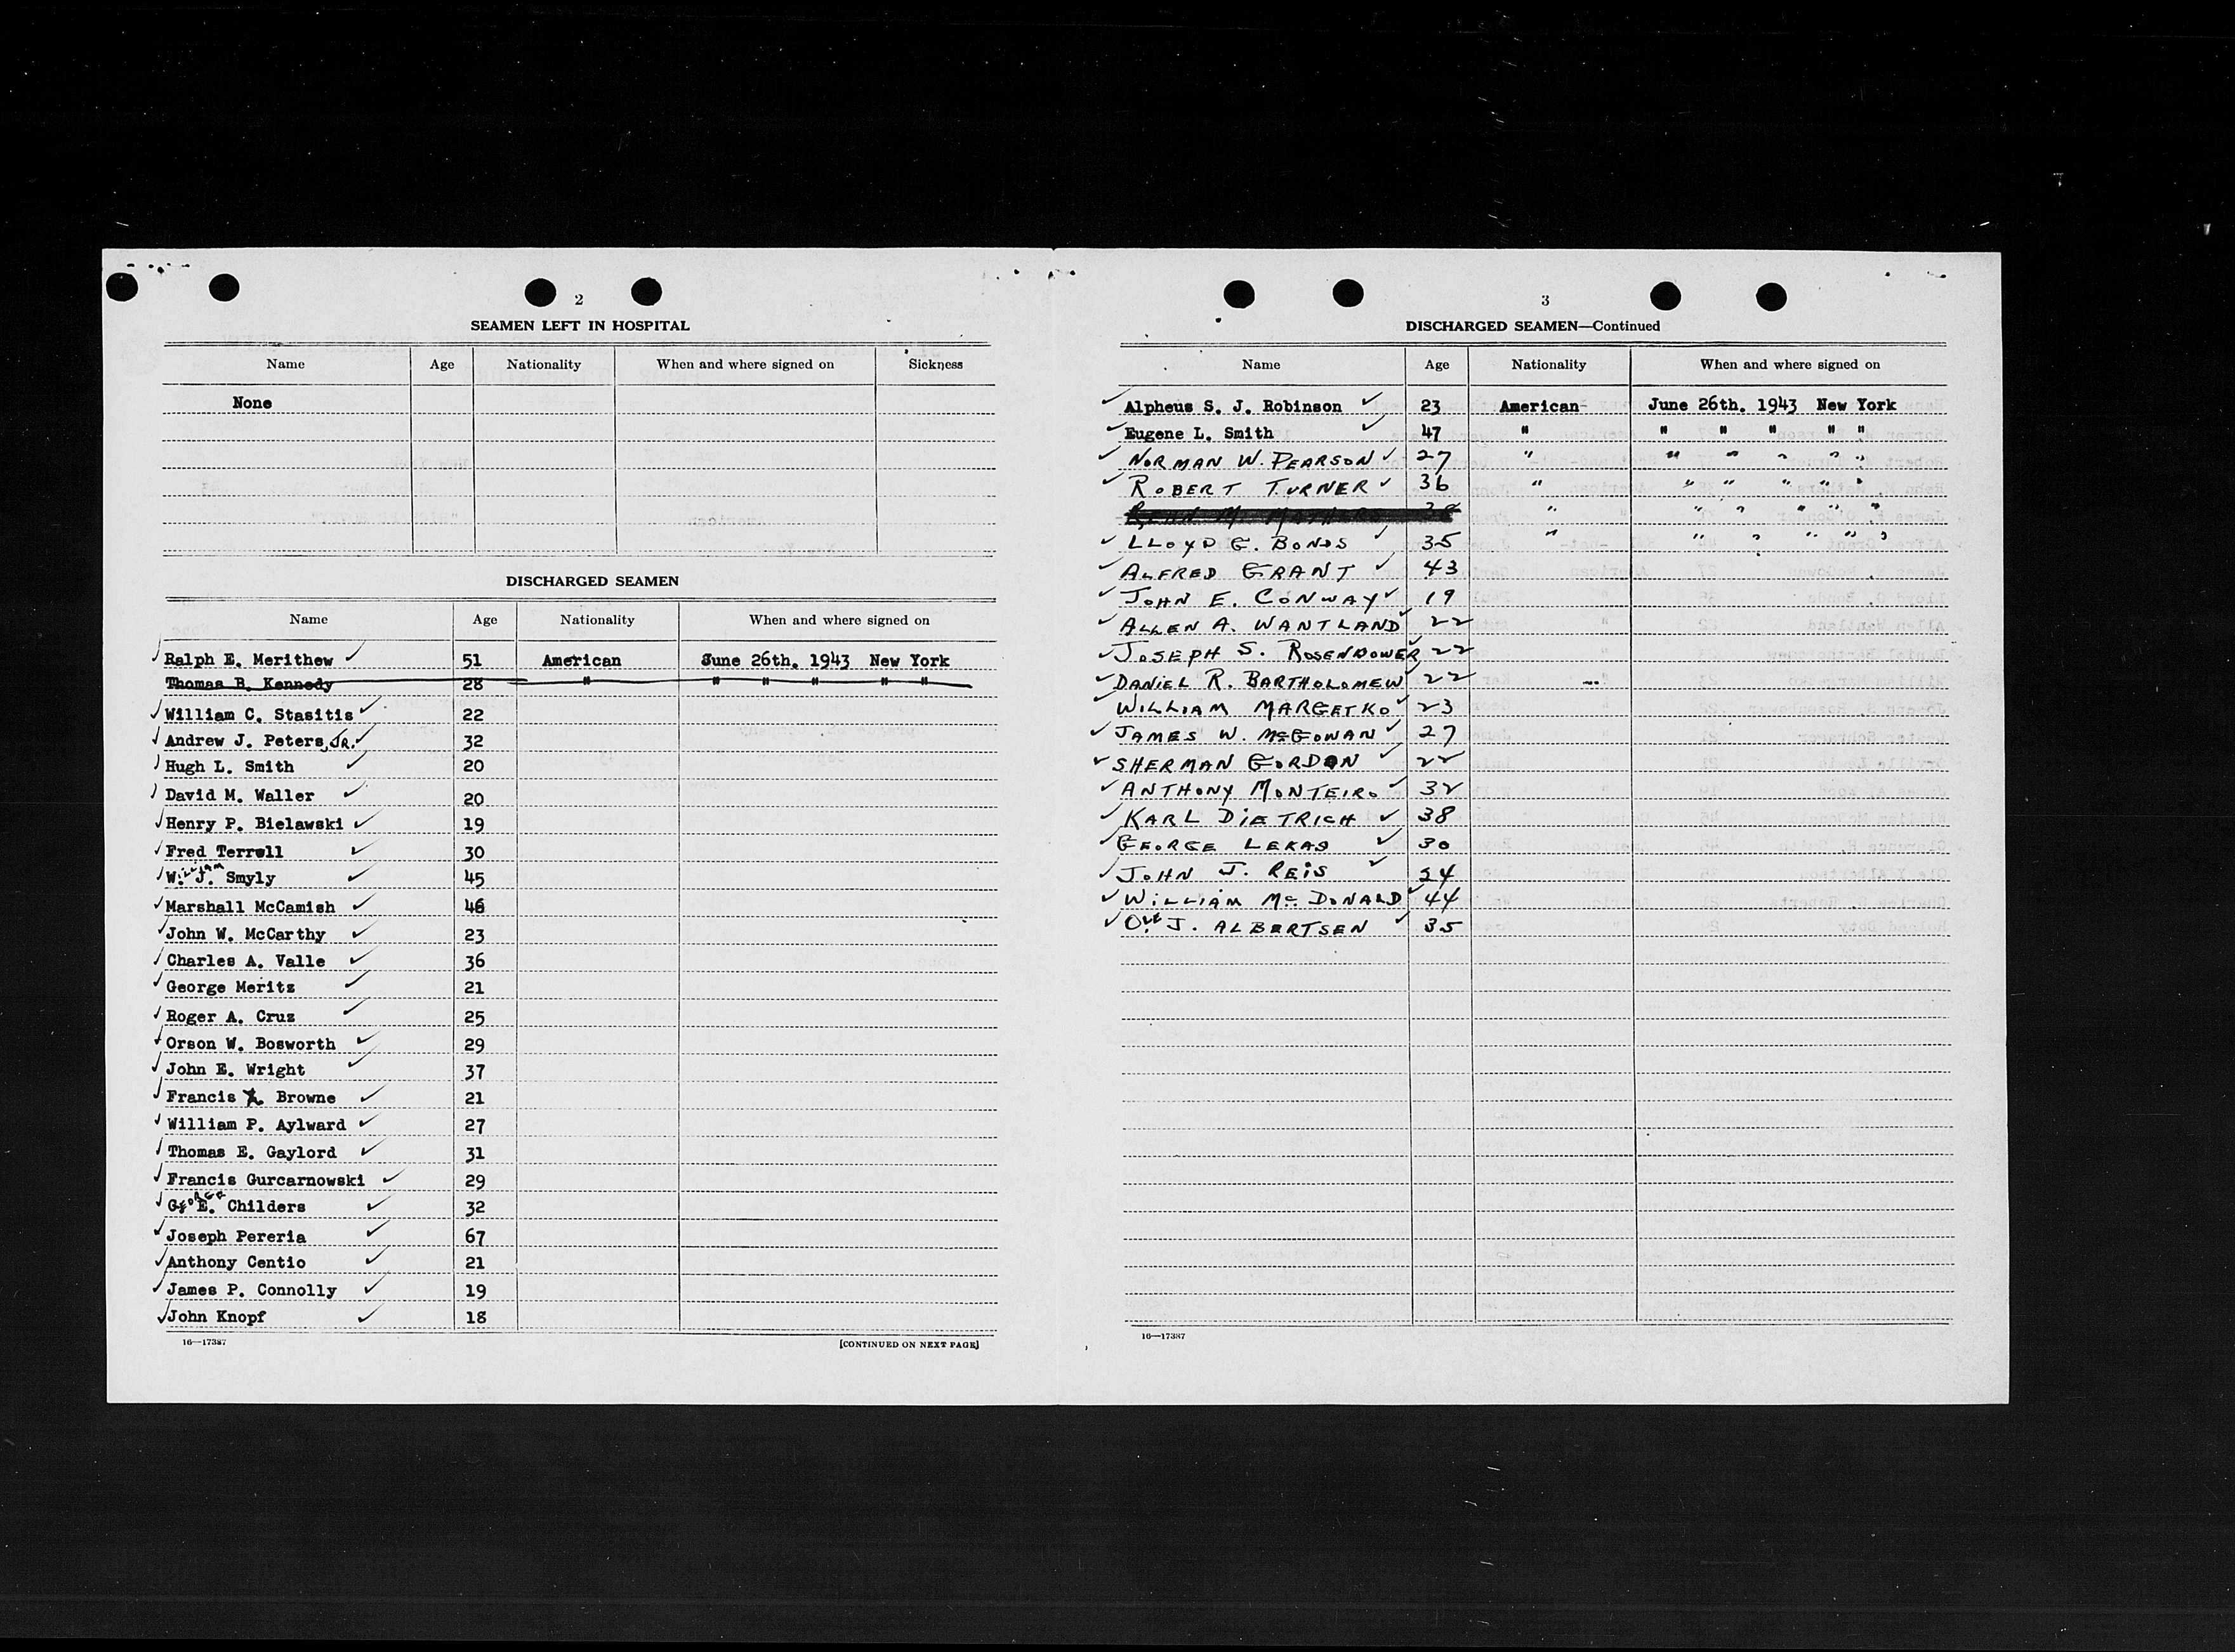 2
SEAMEN LEFT IN HOSPITAL
Name Age Nationality When and where signed on Sickness
None
DISCHARGED SEAMEN
Name Age Nationality When and where signed on
Ralph E. Merithew 51 American June 26th. 1943 New York
Thomas B. Kennedy 28 " " " " " "
William C. Stasitis 22
Andrew J. Peters, JR. 32
Hugh L. Smith 20
David M. Waller 20
Henry P. Bielawski 19
Fred Terrell 30
William J. Smyly 45
Marshall McCamish 46
John W. McCarthy 23
Charles A. Valle 36
George Meritz 21
Roger A. Cruz 25
Orson W. Bosworth 29
John E. Wright 37
Francis X. Browne 21
William P. Aylward 27
Thomas E. Gaylord 31
Francis Gurcarnowski 29
George E. Childers 32
Joseph Pereria 67
Anthony Centio 21
James P. Connolly 19
John Knopf 18
16—17387 [CONTINUED ON NEXT PAGE]
3
DISCHARGED SEAMEN—Continued
Name Age Nationality When and where signed on
Alpheus S. J. Robinson 23 American June 26th. 1943 New York
Eugene L. Smith 47 " " " " " "
NORMAN W. PEARSON 27 " " " " " "
ROBERT TURNER 36 " " " " " "
M. MATHERS 38 " " " " " "
LLOYD G. BONDS 35 " " " " " "
ALFRED GRANT 43
JOHN E. CONWAY 19
ALLEN A. WANTLAND 22
JOSEPH S. ROSENDOWER 22
DANIEL R. BARTHOLOMEW 22
WILLIAM MARGETKO 23
JAMES W. McGOWAN 27
SHERMAN GORDON 22
ANTHONY MONTEIRO 32
KARL DIETRICH 38
GEORGE LEKAS 30
JOHN J. REIS 54
WILLIAM Mc DONALD 44
OVE J. ALBERTSEN 35
16—17387